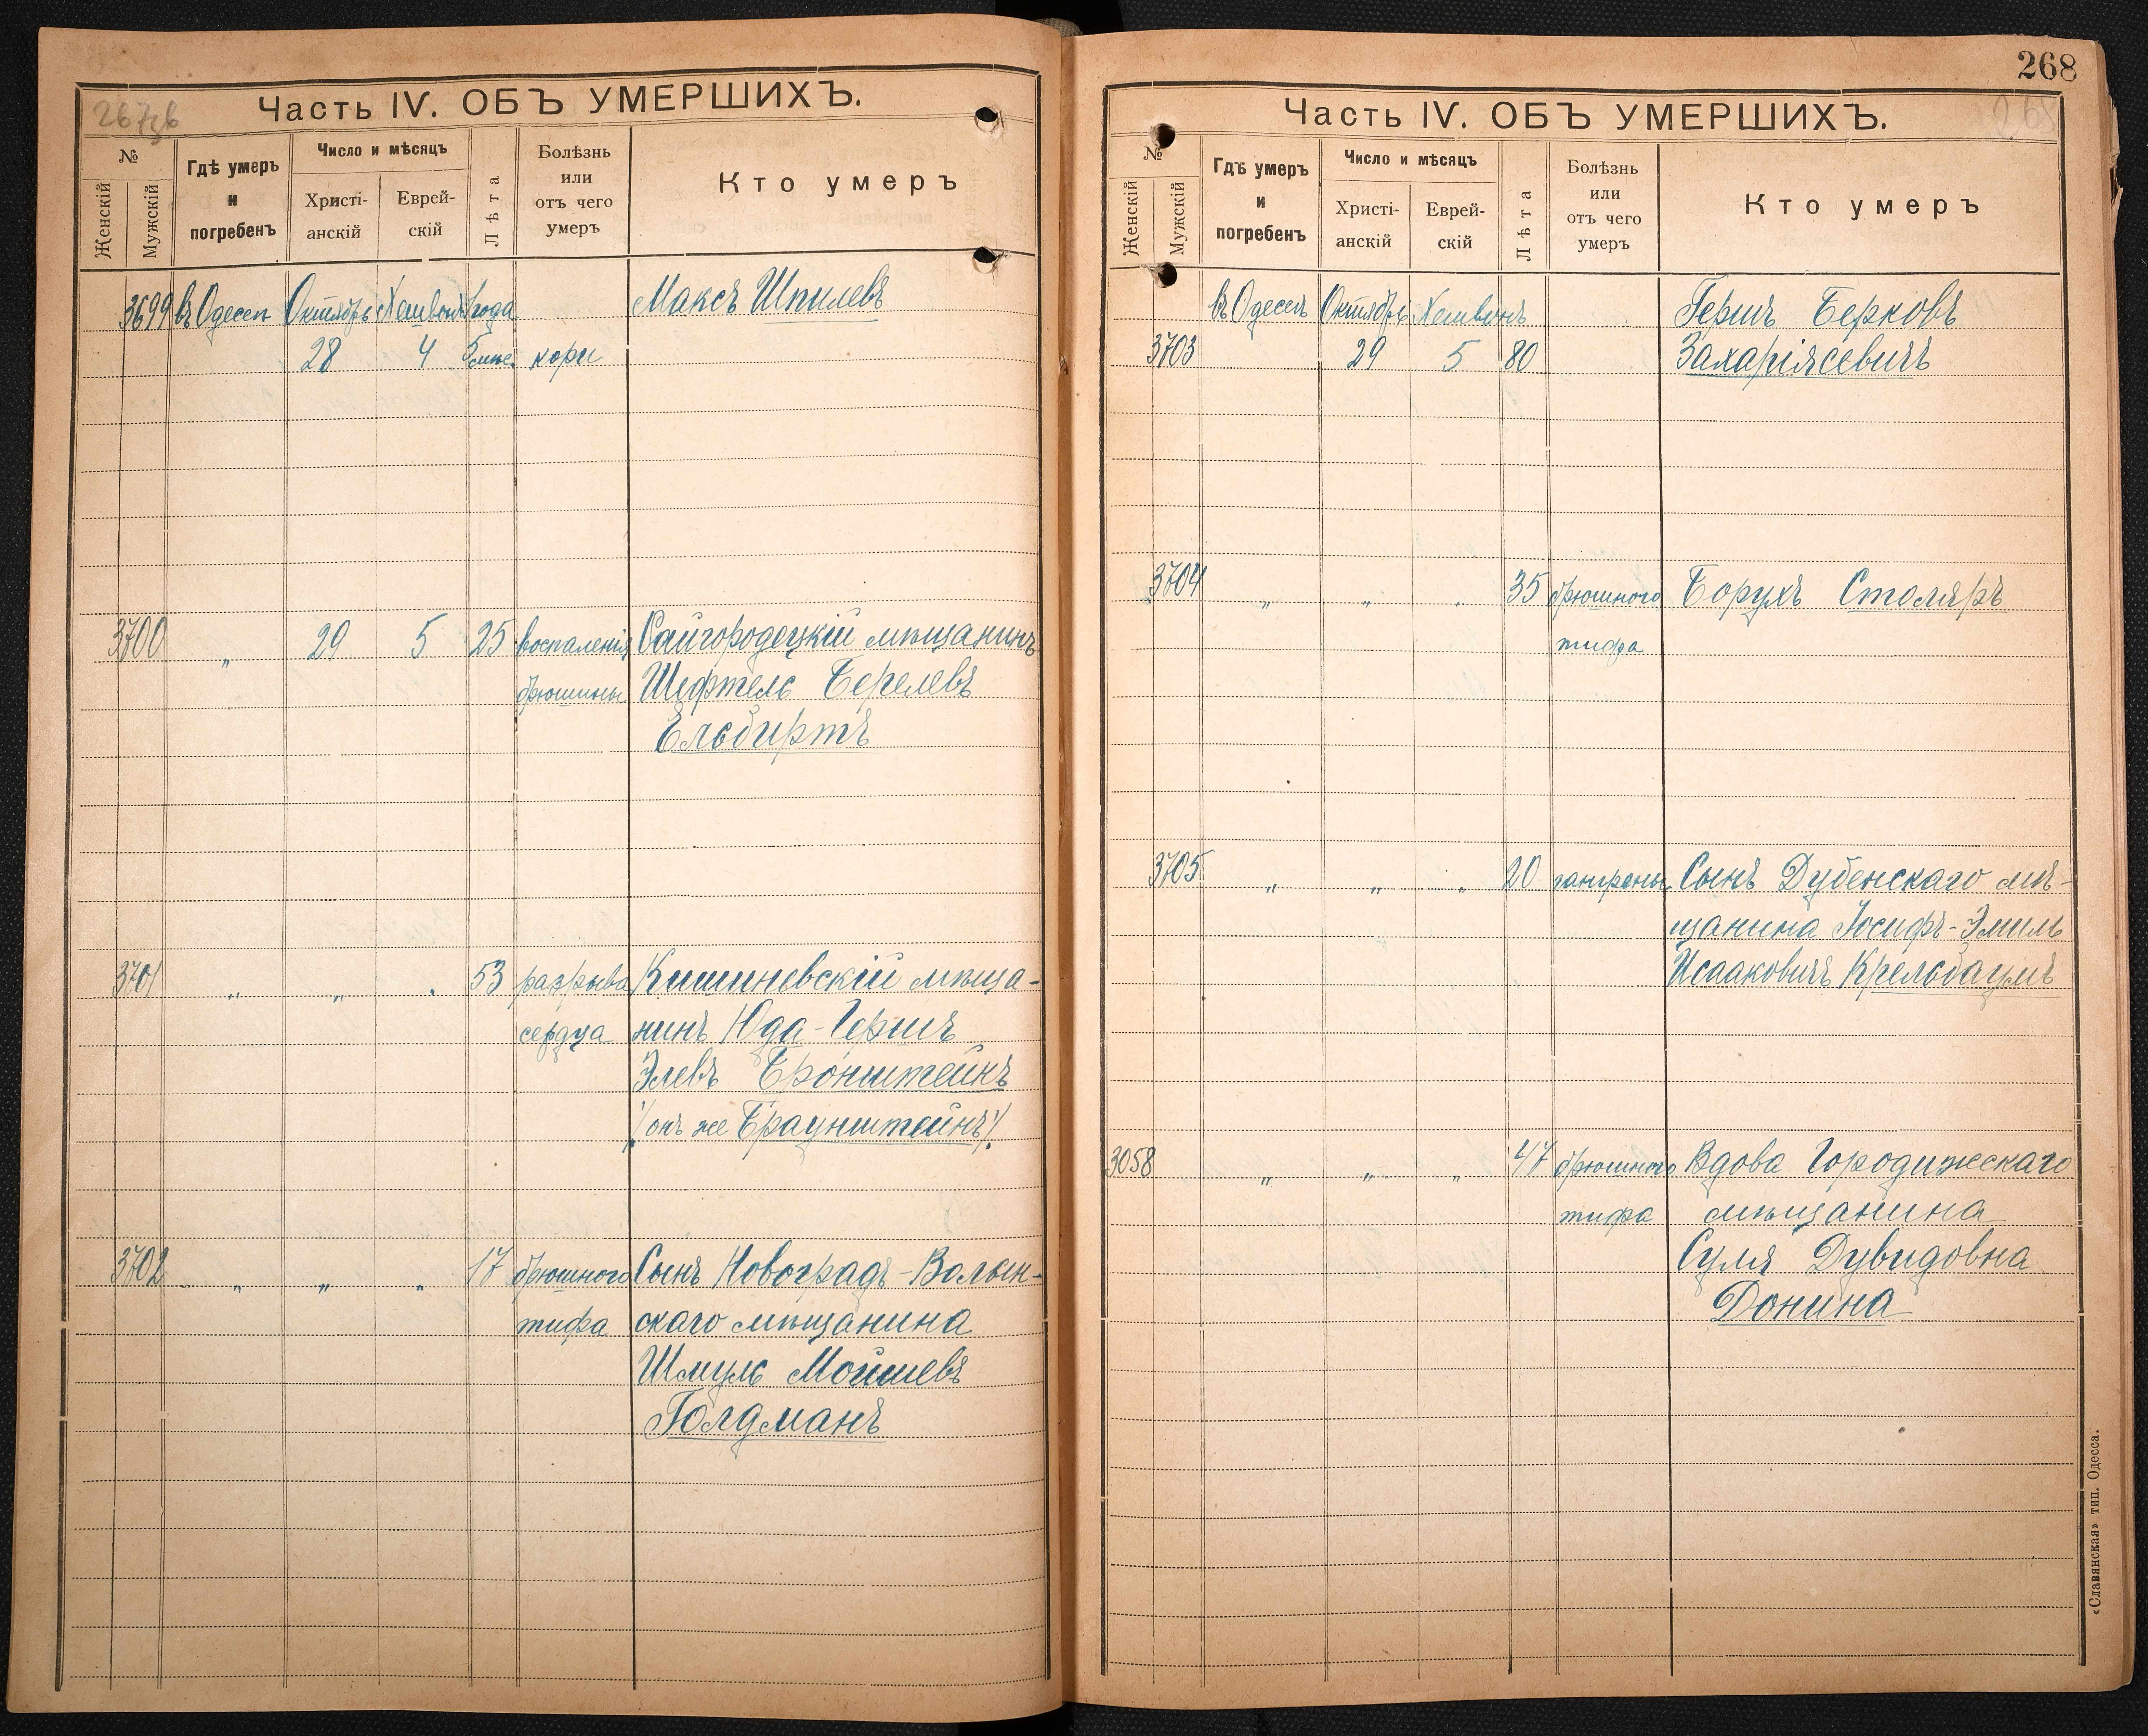 267зб
Часть IV. ОБЪ УМЕРШИХЪ.
№
Женскій
Мужскій
Гдѣ умеръ
и
погребенъ
Число и мѣсяцъ
Христі-
анскій
Еврей-
скій
Лѣта
Болѣзнь
или
отъ чего
умеръ
Кто умеръ
3699 въ Одессѣ Октябрь Хешвонъ 1 года Максъ Шпилевъ
28 4 5 мѣс. кори
3700 „ 29 5 25 воспаленія Сайгородецкій мѣщанинъ
брюшины Шефтель Берелевъ
Ельбиртъ
3701 „ „ „ 53 разрыва Кишиневскій мѣща-
сердца нинъ Юда-Гершъ
Элевъ Бронштейнъ
/онъ же Браунштейнъ/
3702 „ „ „ 17 брюшного Сынъ Новоградъ-Волын-
тифа скаго мѣщанина
Шмуль Мойшевъ
Голдманъ
268
268
Часть IV. ОБЪ УМЕРШИХЪ.
№
Женскій
Мужскій
Гдѣ умеръ
и
погребенъ
Число и мѣсяцъ
Христі-
анскій
Еврей-
скій
Лѣта
Болѣзнь
или
отъ чего
умеръ
Кто умеръ
въ Одессѣ Октябрь Хешвонъ Гершъ Берковъ
3703 29 5 80 Захаріясевичъ
3704 „ „ „ 35 брюшного Борухъ Столяръ
тифа
3705 „ „ „ 20 гангрены Сынъ Дубенскаго мѣ-
щанина Іосифъ-Эмиль
Исааковичъ Крельбаумъ
3058 „ „ „ 47 брюшного Вдова Городижскаго
тифа мѣщанина
Суля Дувидовна
Донина
«Славянская» тип. Одесса.